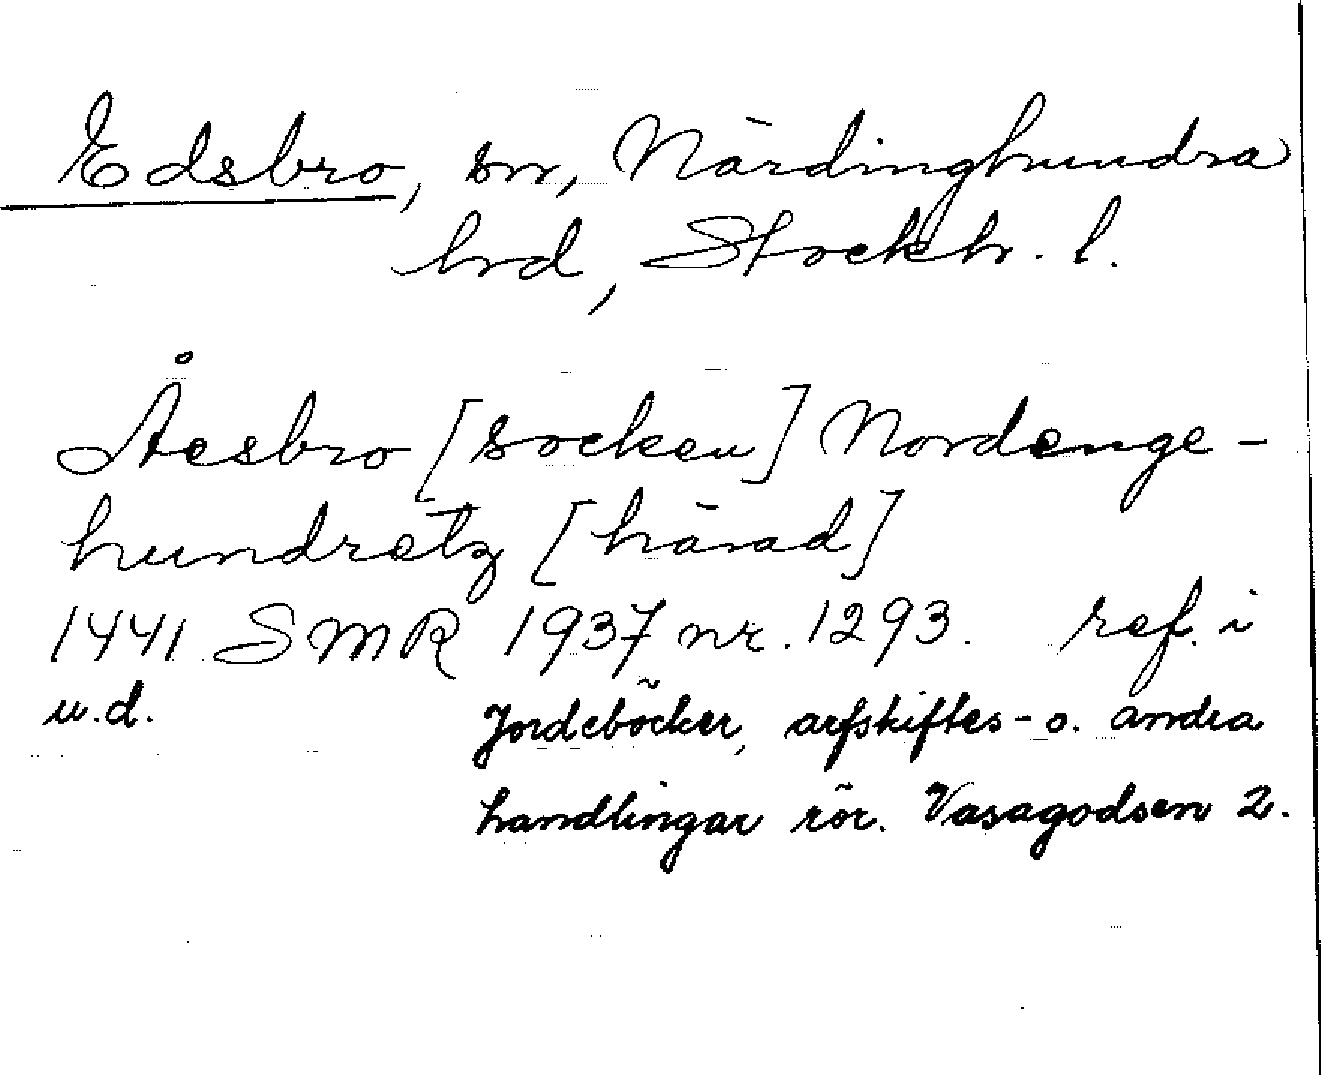 Edsbro, sn, Närdinghundra
hrd, Stockh. l.
Åesbro [socken] Nordenge-
hundretz [härad]
1441 SMR 1937 nr. 1293. ref. i
u.d. Jordeböcker, arfskiftes- o. andra
handlingar rör. Vasagodsen 2.